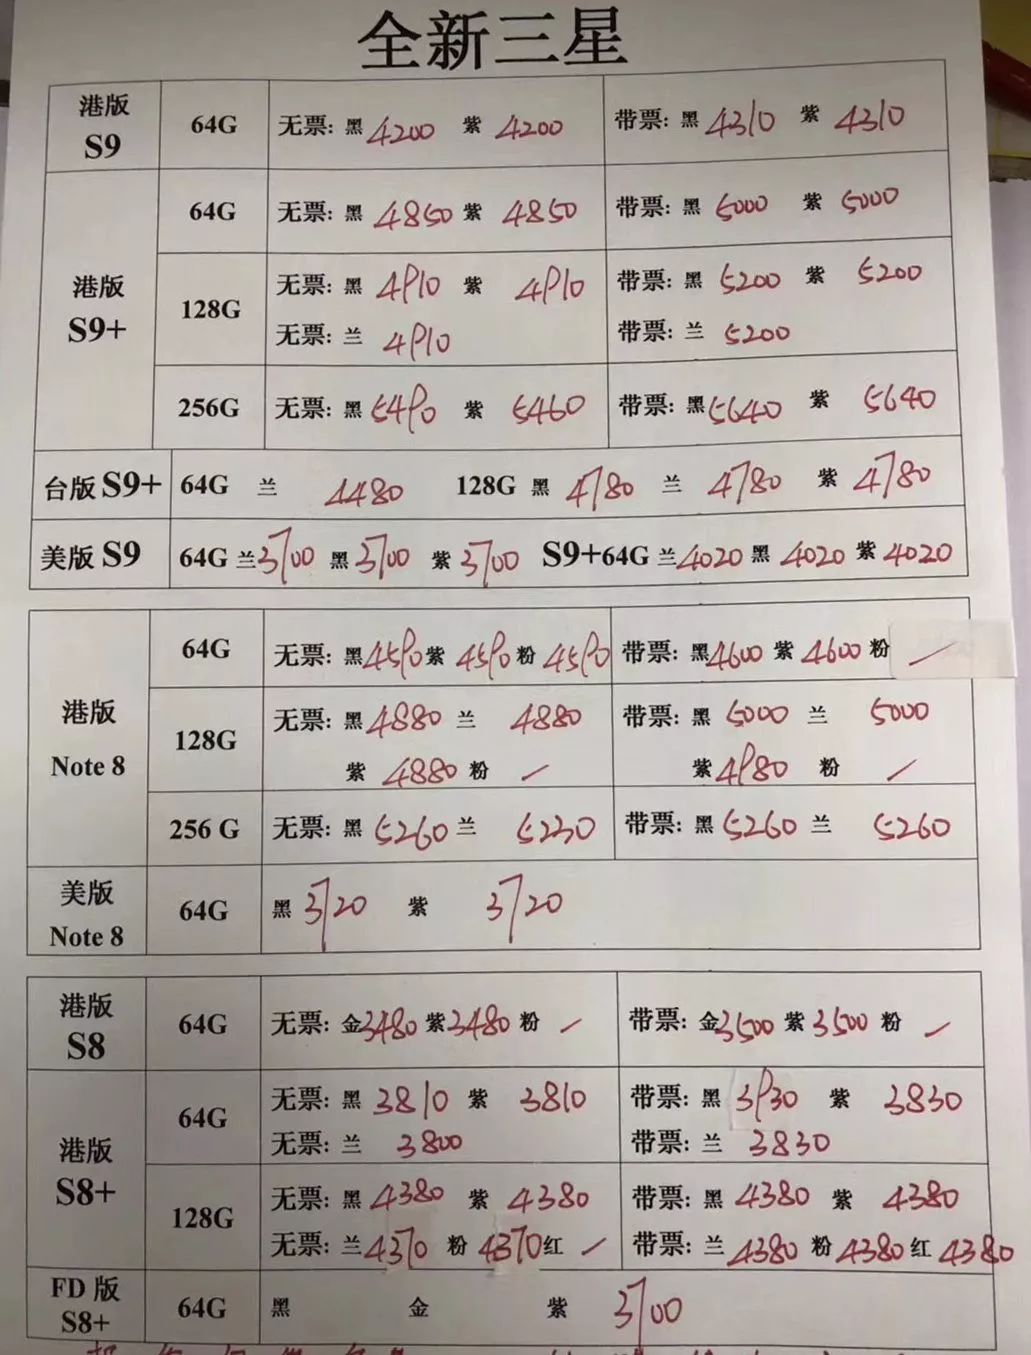 全新三星
港版 S9 64G 无票: 黑 4200 紫 4200 带票: 黑 4310 紫 4310
港版 S9+
64G 无票: 黑 4850 紫 4850 带票: 黑 5000 紫 5000
128G 无票: 黑 4910 紫 4910 带票: 黑 5200 紫 5200
无票: 兰 4910 带票: 兰 5200
256G 无票: 黑 5490 紫 5460 带票: 黑 5640 紫 5640
台版 S9+ 64G 兰 4480 128G 黑 4780 兰 4780 紫 4780
美版 S9 64G 兰 3700 黑 3700 紫 3700 S9+64G 兰 4020 黑 4020 紫 4020
港版 Note 8
64G 无票: 黑 4590 紫 4590 粉 4590 带票: 黑 4600 紫 4600 粉 /
128G 无票: 黑 4880 兰 4880 带票: 黑 5000 兰 5000
紫 4880 粉 / 紫 4980 粉 /
256 G 无票: 黑 5260 兰 5230 带票: 黑 5260 兰 5260
美版 Note 8 64G 黑 3720 紫 3720
港版 S8 64G 无票: 金 3480 紫 3480 粉 / 带票: 金 3500 紫 3500 粉 /
港版 S8+
64G 无票: 黑 3810 紫 3810 带票: 黑 3930 紫 3830
无票: 兰 3800 带票: 兰 3830
128G 无票: 黑 4380 紫 4380 带票: 黑 4380 紫 4380
无票: 兰 4370 粉 4370 红 / 带票: 兰 4380 粉 4380 红 4380
FD 版 S8+ 64G 黑 金 紫 3700